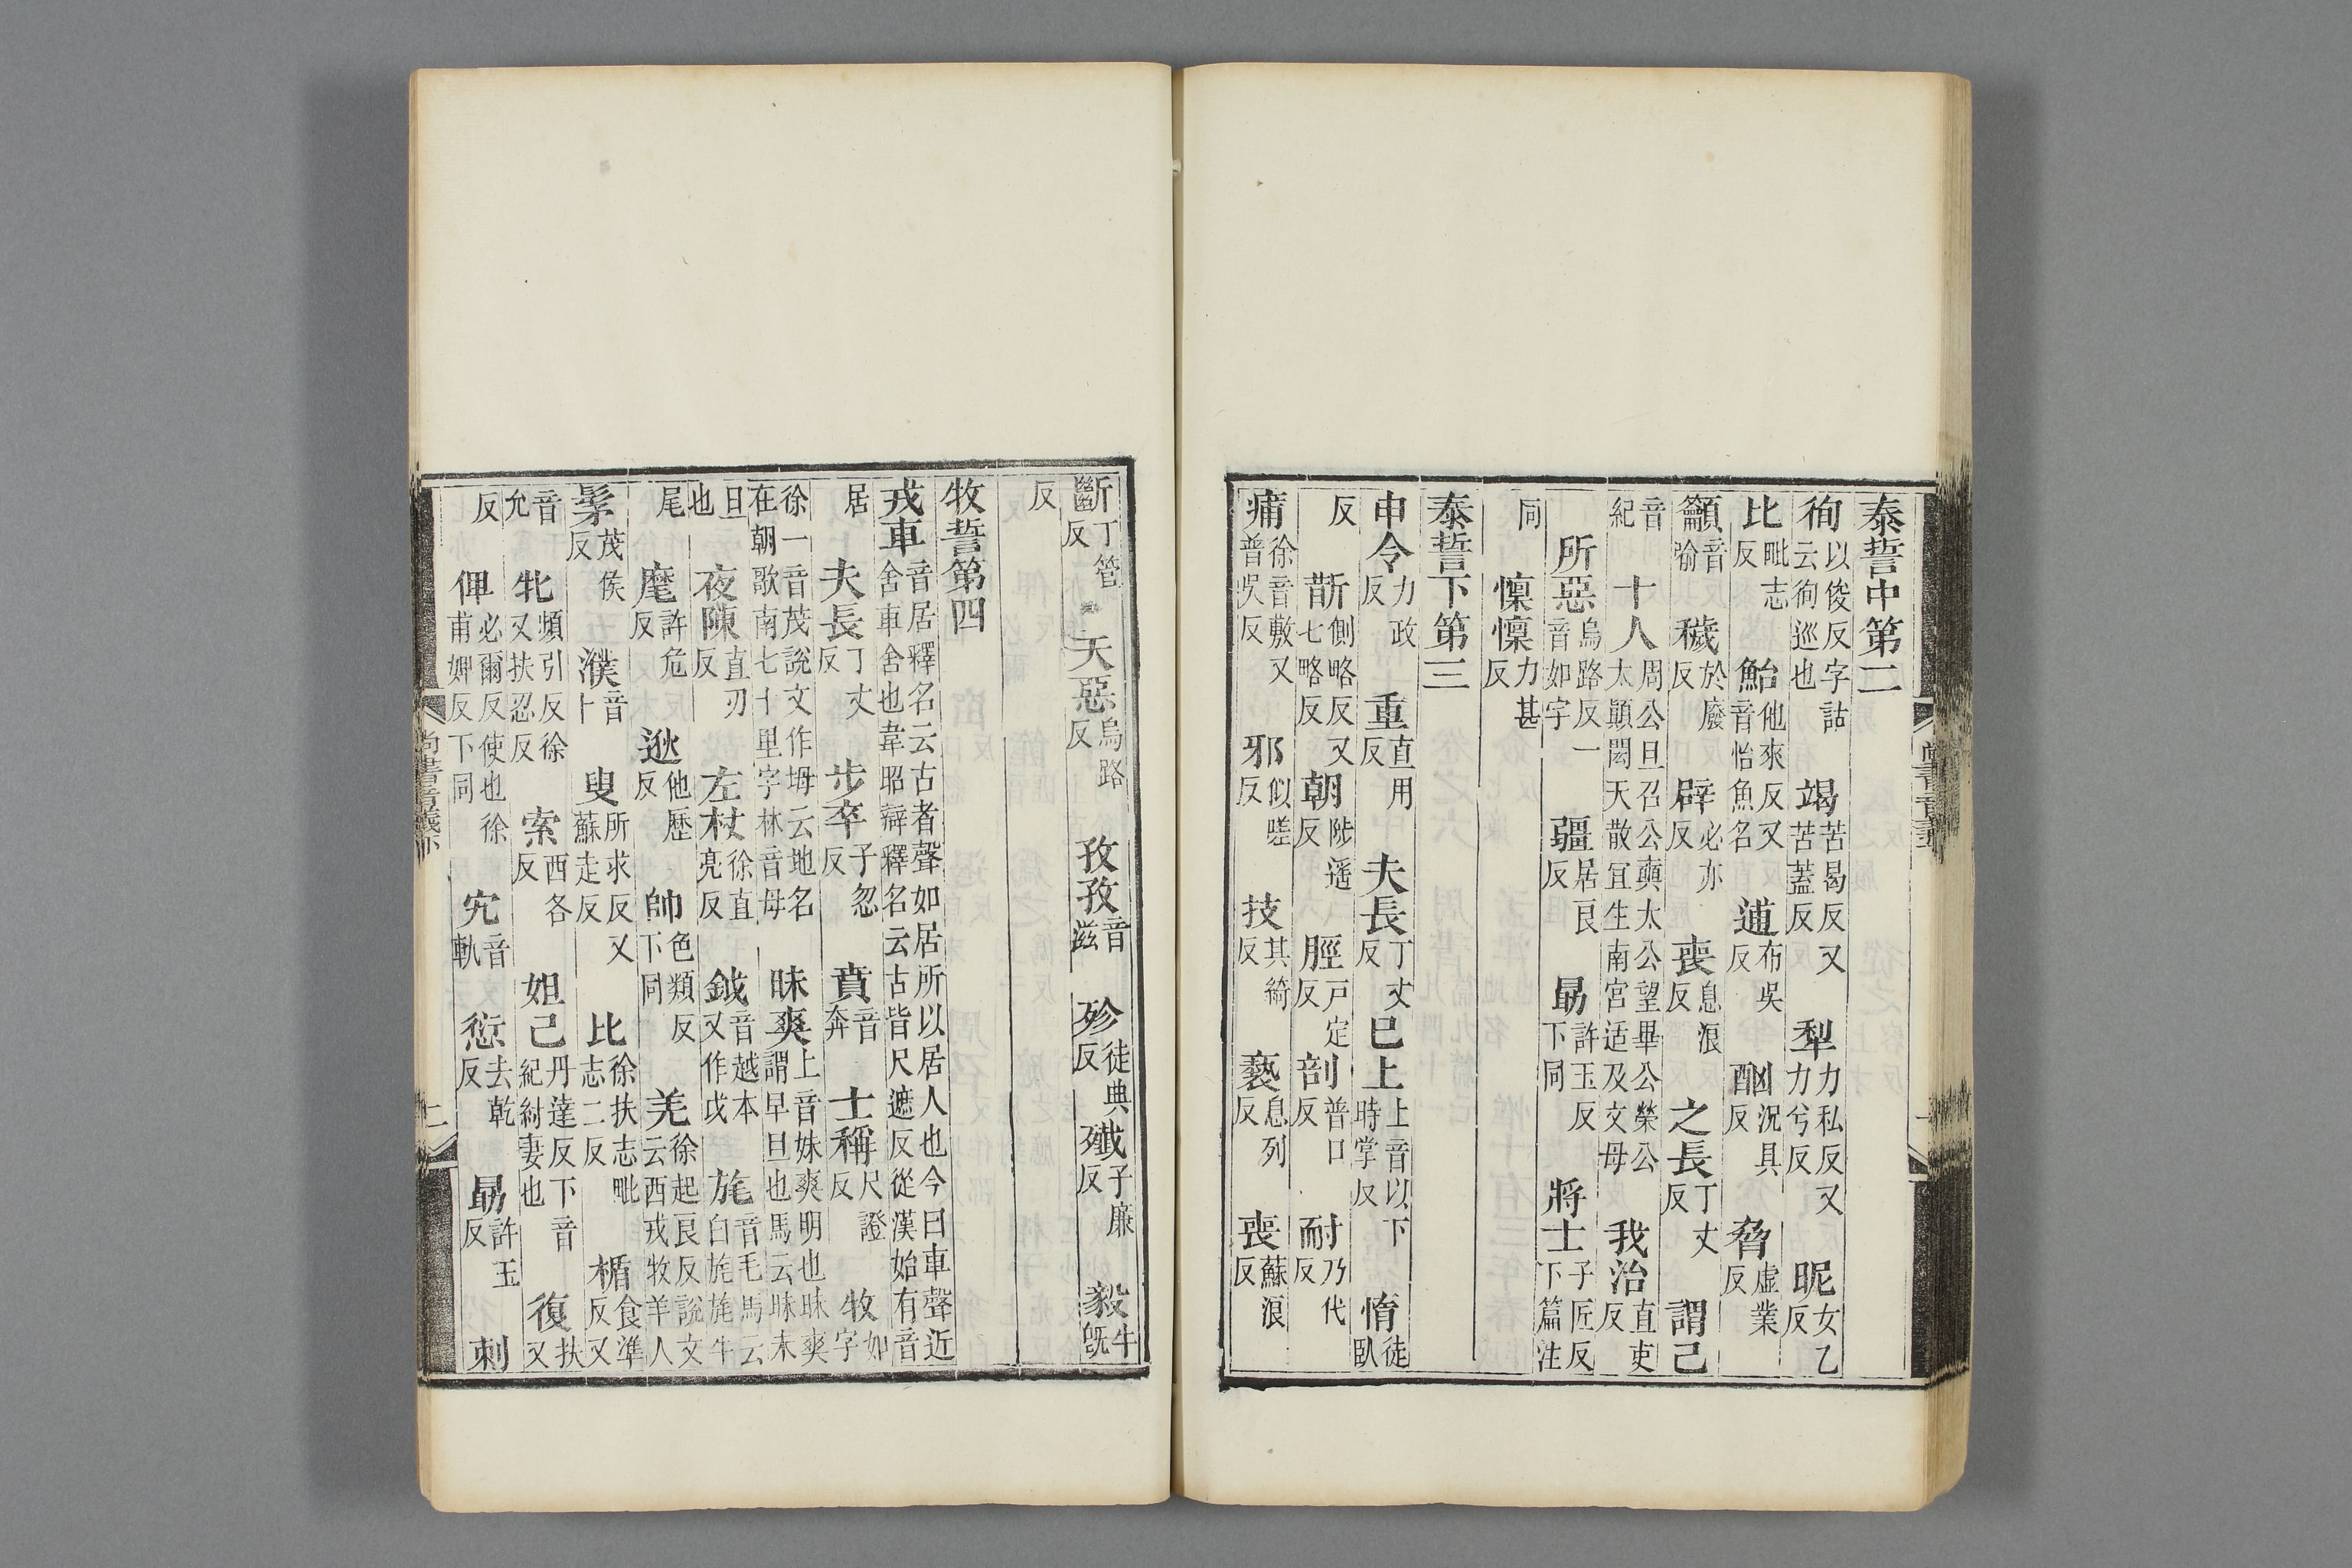 泰誓中第二
徇以俊反字詁云徇巡也 竭苦曷反又苦蓋反 犁力私反又力兮反 昵女乙反
比毗志反 鮐他來反又音怡魚名 逋布吳反 酗況具反 脅虛業反
籲音喻 穢於廢反 辟必亦反 喪息浪反 之長丁丈反 謂己
音紀 十人周公旦召公奭太公望畢公榮公太顚閎夭散宜生南宮适及文母 我治直吏反
所惡烏路反一音如字 疆居良反 勗許玉反下同 將士子匠反下篇注
同 懍懍力甚反
泰誓下第三
申令力政反 重直用反 夫長丁丈反 已上上音以下時掌反 惰徒臥
反 斮側略反又七略反 朝陟遥反 脛戶定反 剖普口反 耐乃代反
痡徐音敷又普吳反 邪似嗟反 技其綺反 褻息列反 喪蘇浪反
斷丁管反 天惡烏路反 孜孜音滋 殄徒典反 殱子廉反 毅牛旣
反
牧誓第四
戎車音居釋名云古者聲如居所以居人也今曰車聲近舍車舍也韋昭辯釋名云古皆尺遮反從漢始有音
居 夫長丁丈反 步卒子忽反 賁音奔 士稱尺證反 牧如字
徐一音茂說文作坶云地名在朝歌南七十里字林音母 昧爽上音妹爽明也昧爽謂早旦也馬云昧未
旦也 夜陳直刃反 左杖徐直亮反 鉞音越本又作戉 旄音毛馬云白旄旄牛
尾 麾許危反 逖他歷反 帥色類反下同 羌徐起良反說文云西戎牧羊人
髳茂侯反 濮音卜 叟所求反又蘇走反 比徐扶志毗志二反 楯食準反又
音允 牝頻引反徐又扶忍反 索西各反 妲己丹達反下音紀紂妻也 復扶又
反 俾必爾反使也徐甫婢反下同 宄音軌 愆去乾反 勗許玉反 刺
尚書音義下
二